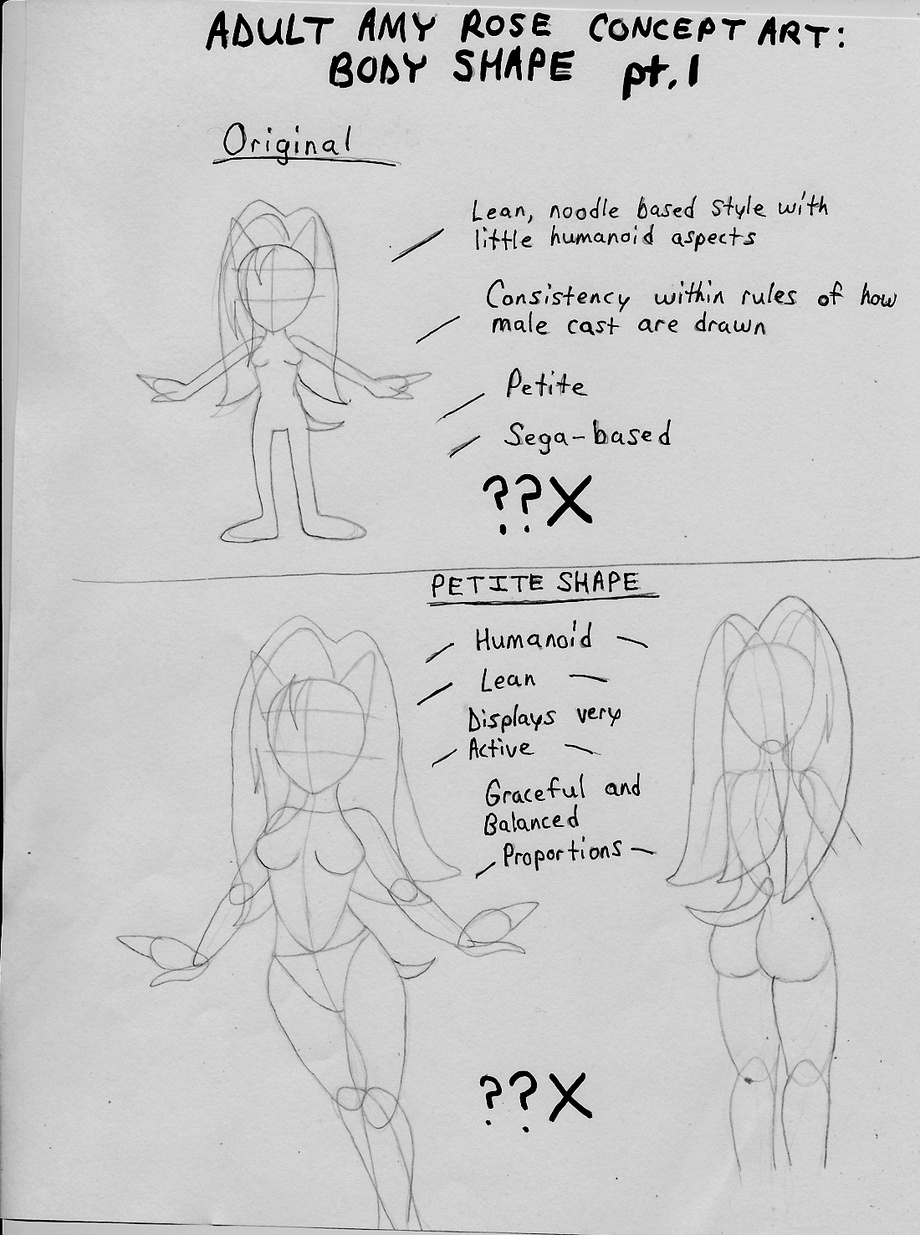 ADULT AMY ROSE CONCEPT ART:
BODY SHAPE pt.1
Original
Lean, noodle based style with
little humanoid aspects
Consistency within rules of how
male cast are drawn
Petite
Sega-based
??X
PETITE SHAPE
Humanoid
Lean
Displays very
Active
Graceful and
Balanced
Proportions
??X